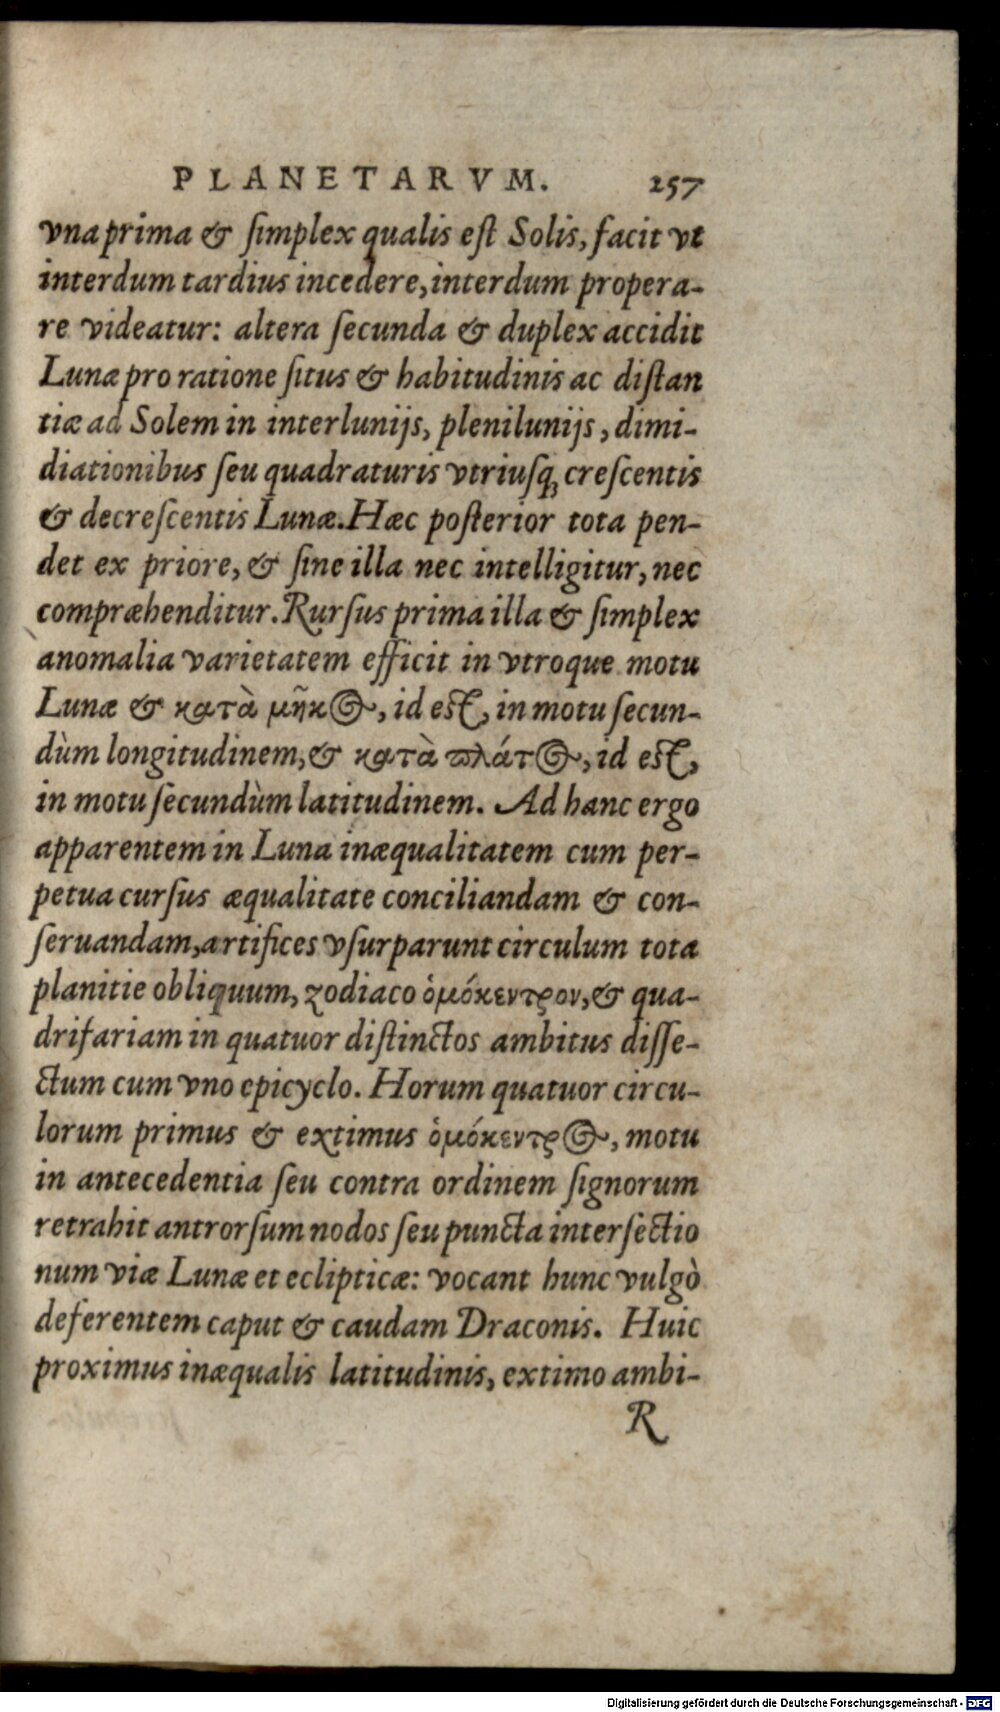 PLANETARVM. 257
vna prima & ſimplex qualis eſt Solis, facit vt
interdum tardius incedere, interdum propera-
re videatur: altera ſecunda & duplex accidit
Lunæ pro ratione ſitus & habitudinis ac diſtan
tiæ ad Solem in interlunijs, plenilunijs, dimi-
diationibus ſeu quadraturis vtriuſq; creſcentis
& decreſcentis Lunæ. Hæc poſterior tota pen-
det ex priore, & ſine illa nec intelligitur, nec
compræhenditur. Rurſus prima illa & ſimplex
anomalia varietatem efficit in vtroque motu
Lunæ & κατὰ μῆκος, id est, in motu ſecun-
dùm longitudinem, & κατὰ πλάτος, id est,
in motu ſecundùm latitudinem. Ad hanc ergo
apparentem in Luna inæqualitatem cum per-
petua curſus æqualitate conciliandam & con-
ſeruandam, artifices vſurparunt circulum tota
planitie obliquum, zodiaco ὁμόκεντρον, & qua-
drifariam in quatuor diſtinctos ambitus diſſe-
ctum cum vno epicyclo. Horum quatuor circu-
lorum primus & extimus ὁμόκεντρος, motu
in antecedentia ſeu contra ordinem ſignorum
retrahit antrorſum nodos ſeu puncta interſectio
num viæ Lunæ et eclipticæ: vocant hunc vulgò
deferentem caput & caudam Draconis. Huic
proximus inæqualis latitudinis, extimo ambi-
R
Digitalisierung gefördert durch die Deutsche Forschungsgemeinschaft - DFG